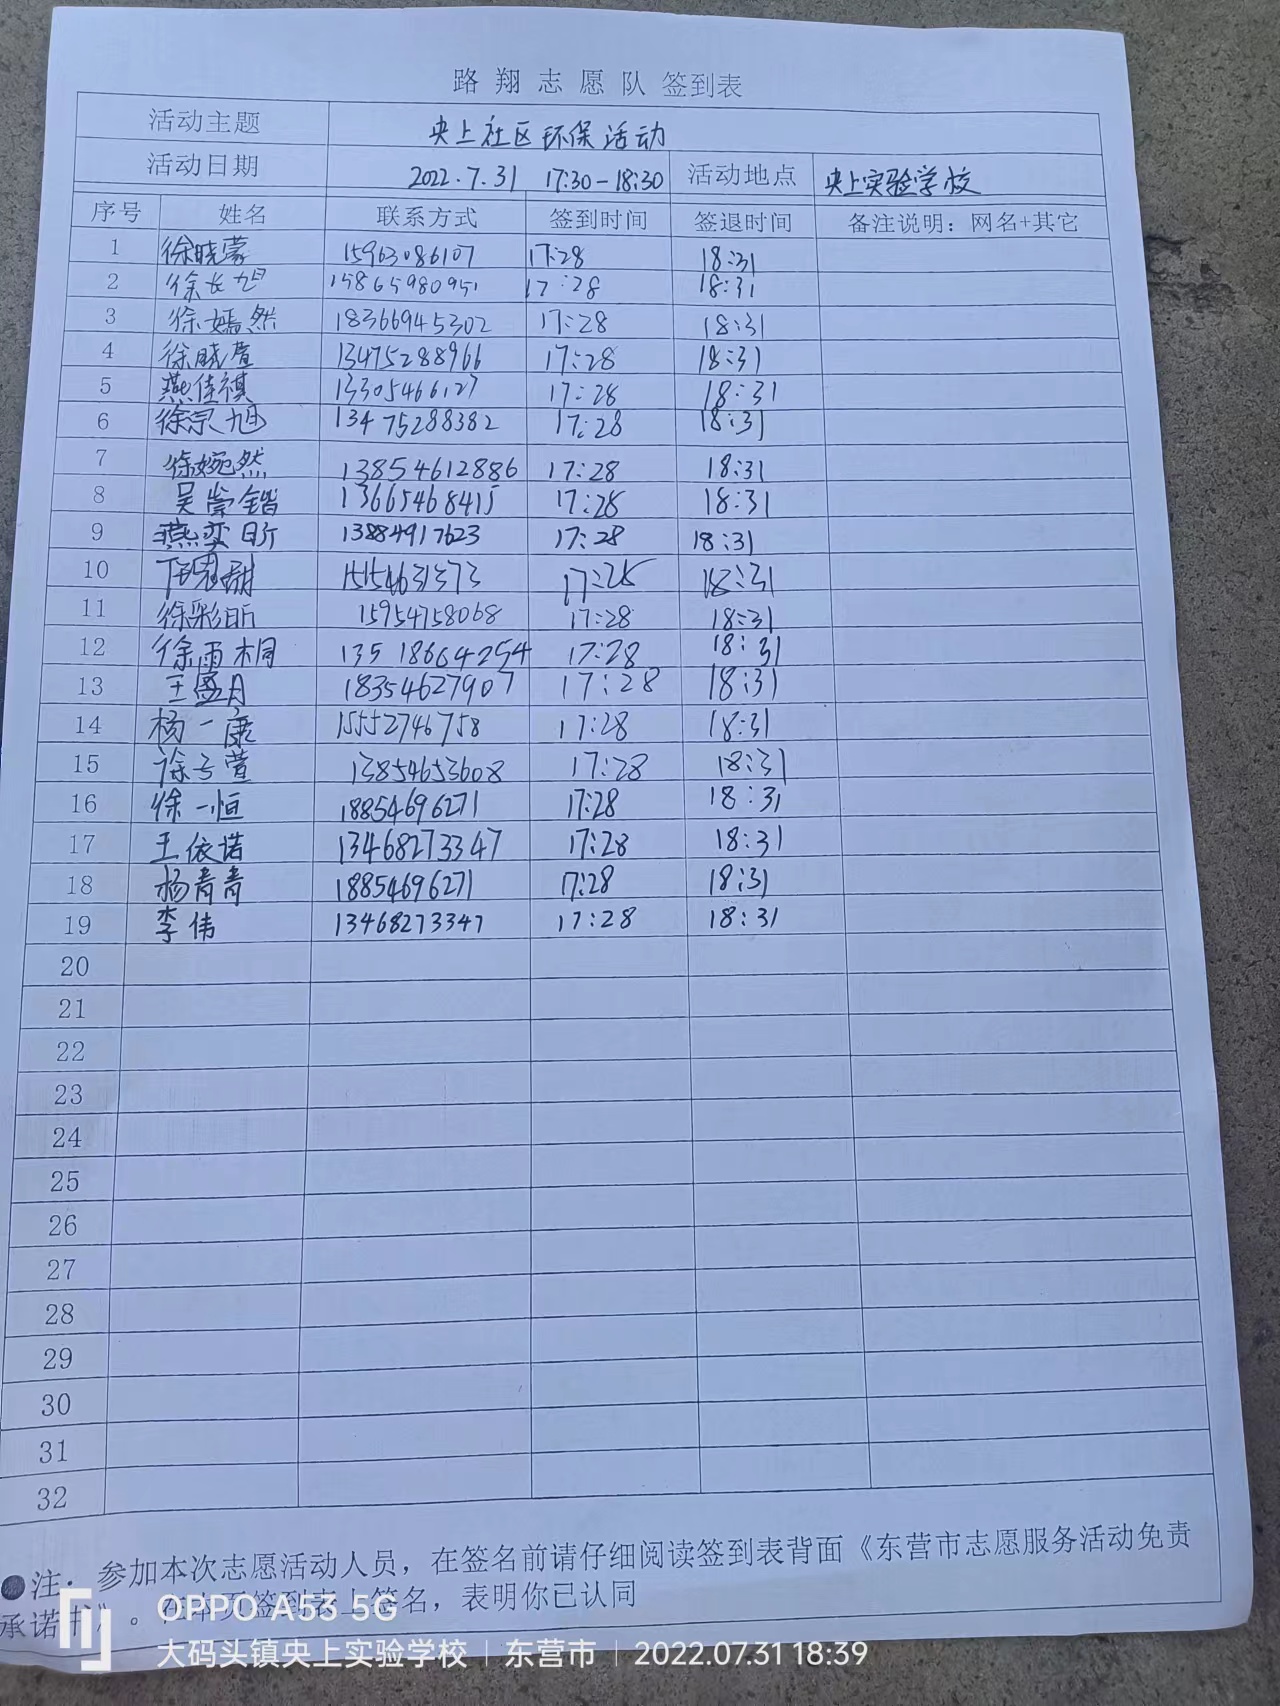 路翔志愿队 签到表
活动主题 央上社区环保活动
活动日期 2022.7.31 17:30-18:30 活动地点 央上实验学校
序号 姓名 联系方式 签到时间 签退时间 备注说明：网名+其它
1 徐晓蒙 15963086107 17:28 18:31
2 徐长旭 15865980951 17:28 18:31
3 徐嫣然 18366945302 17:28 18:31
4 徐晓萱 13475288966 17:28 18:31
5 燕佳祺 13305466127 17:28 18:31
6 徐宗旭 13475288382 17:28 18:31
7 徐婉然 13854612886 17:28 18:31
8 吴崇锴 13665468415 17:28 18:31
9 燕奕昕 13884917623 17:28 18:31
10 15154631373 17:28 18:31
11 徐彩昕 15954758068 17:28 18:31
12 徐雨桐 13518664254 17:28 18:31
13 王盛月 18354627907 17:28 18:31
14 杨一康 15552746758 17:28 18:31
15 徐子萱 13854653608 17:28 18:31
16 徐一恒 18854696271 17:28 18:31
17 王依诺 13468273347 17:28 18:31
18 杨青青 18854696271 17:28 18:31
19 李伟 13468273347 17:28 18:31
20
21
22
23
24
25
26
27
28
29
30
31
32
●注：参加本次志愿活动人员，在签名前请仔细阅读签到表背面《东营市志愿服务活动免责
承诺书》。在本页签到表上签名，表明你已认同
OPPO A55 5G
大码头镇央上实验学校 | 东营市 | 2022.07.31 18:39